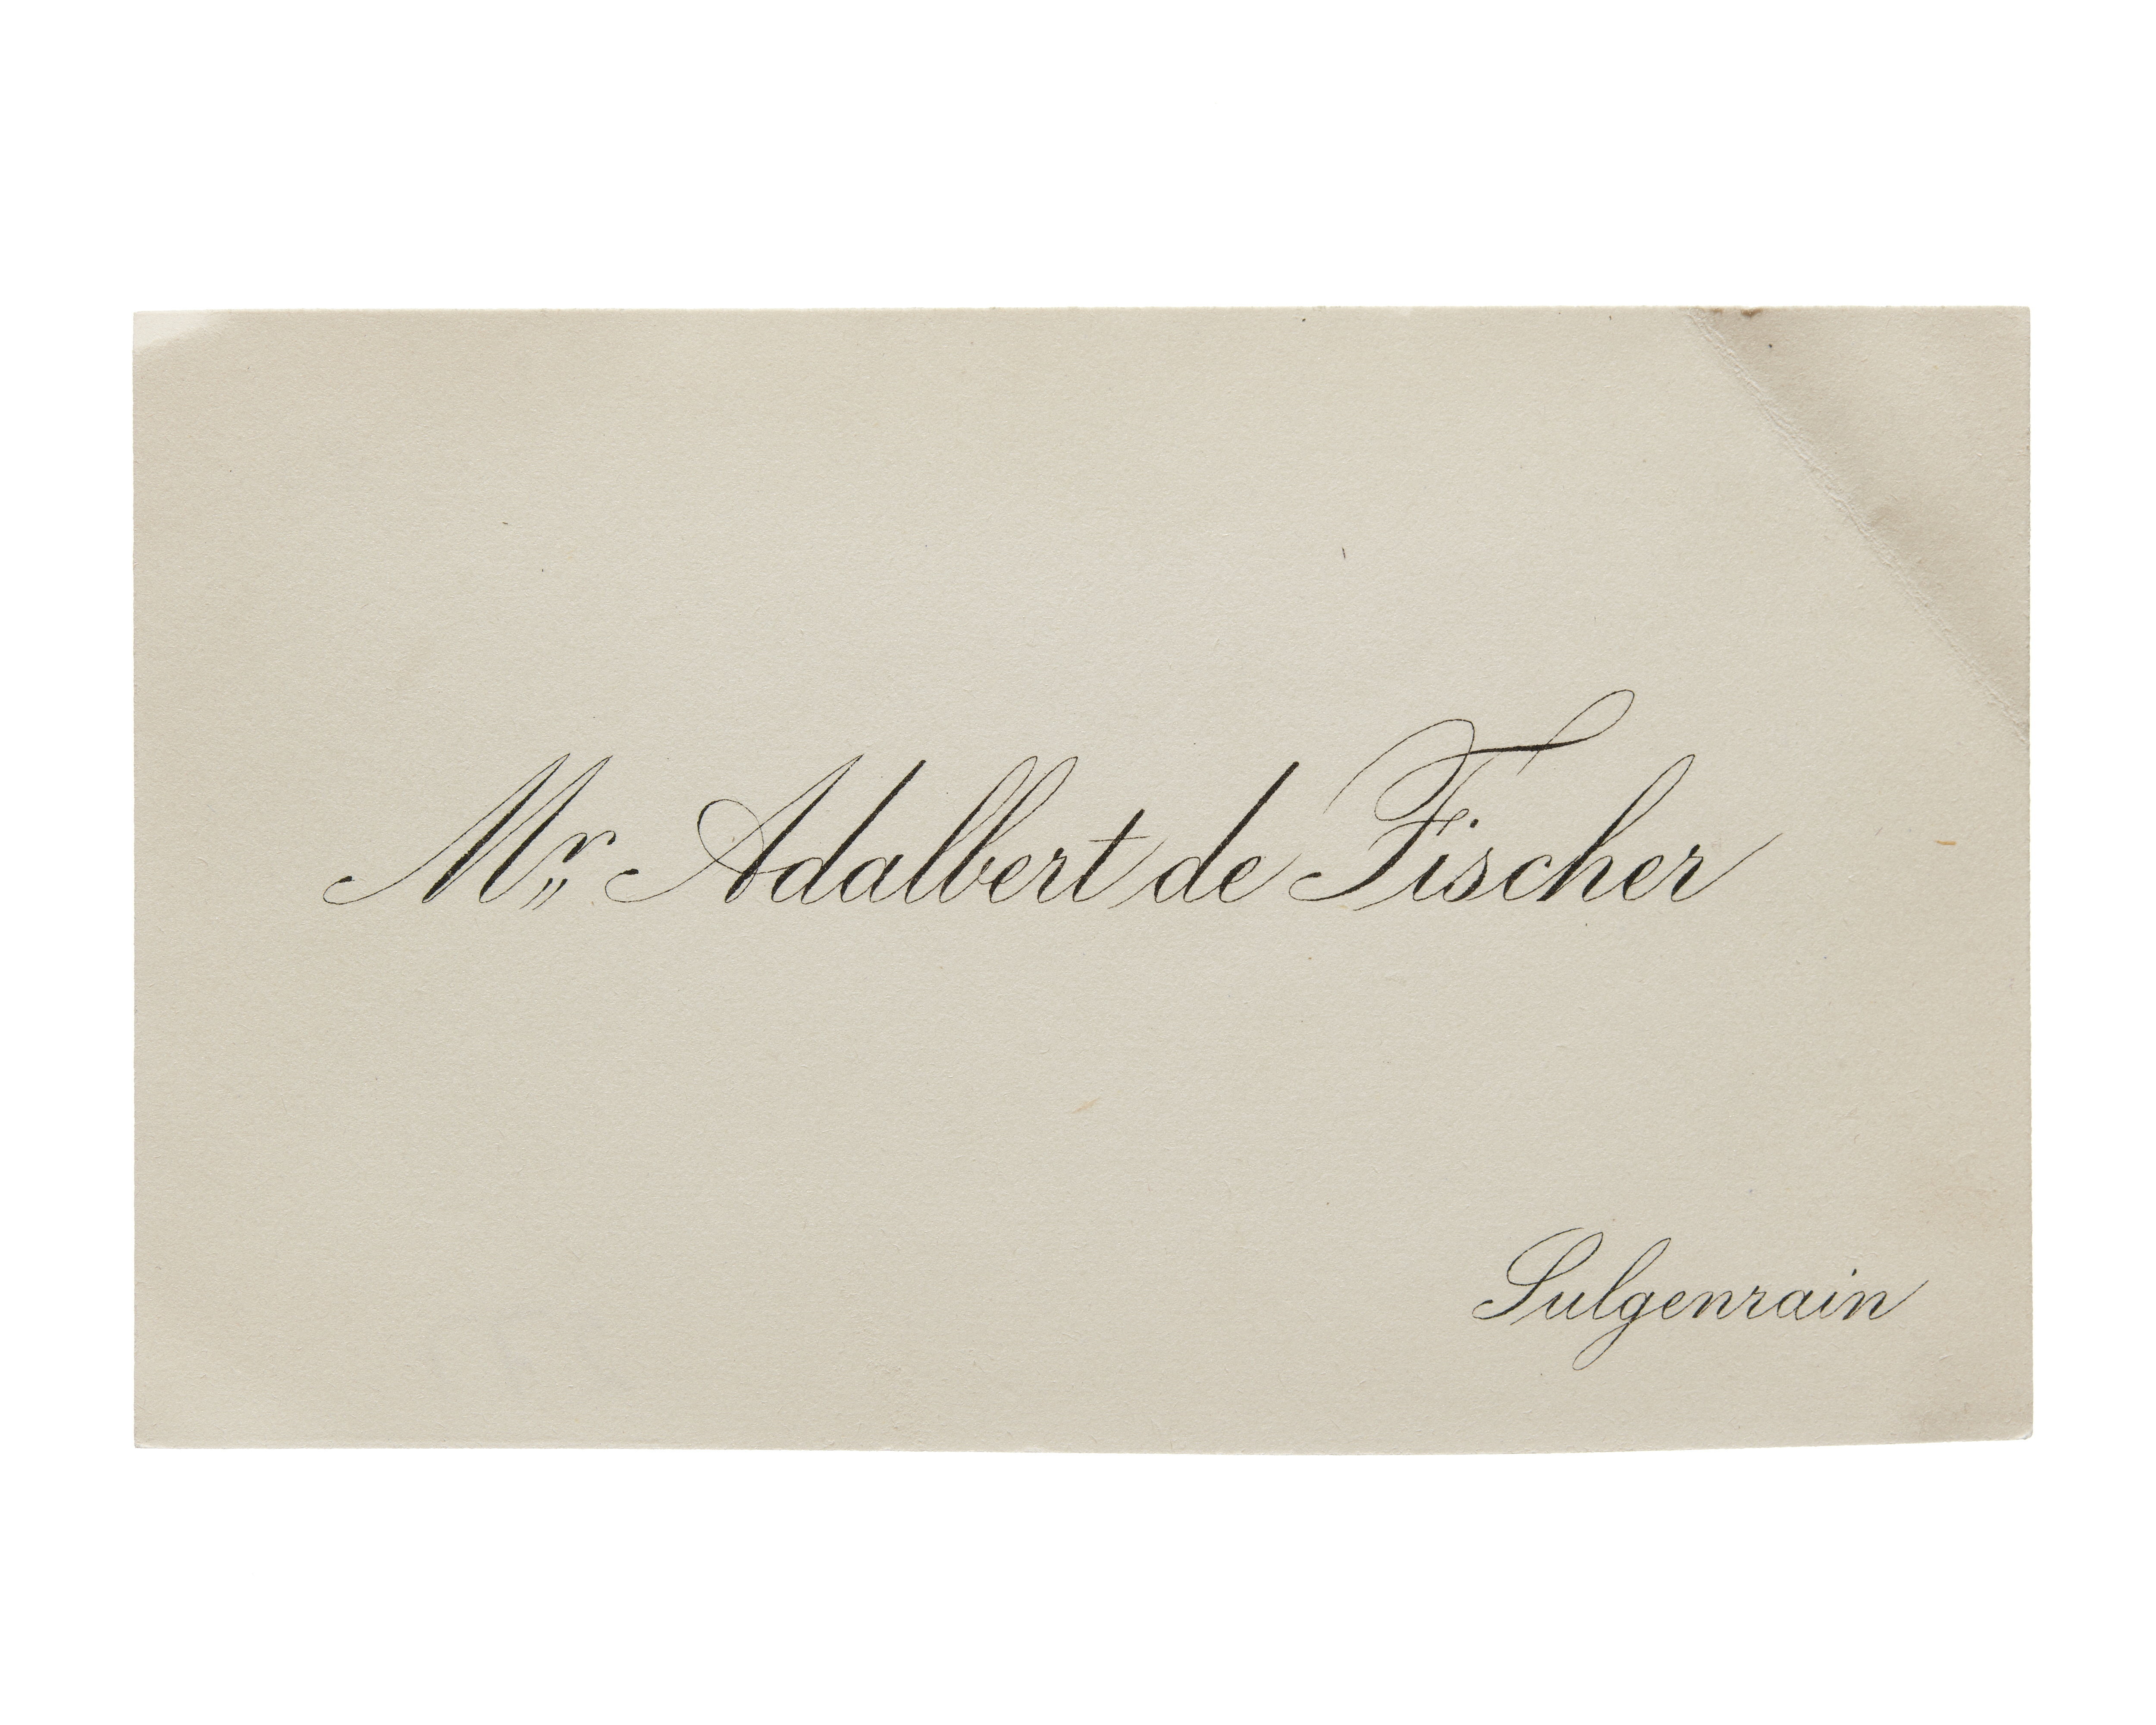 Mr. Adalbert de Fischer
Sulgenrain